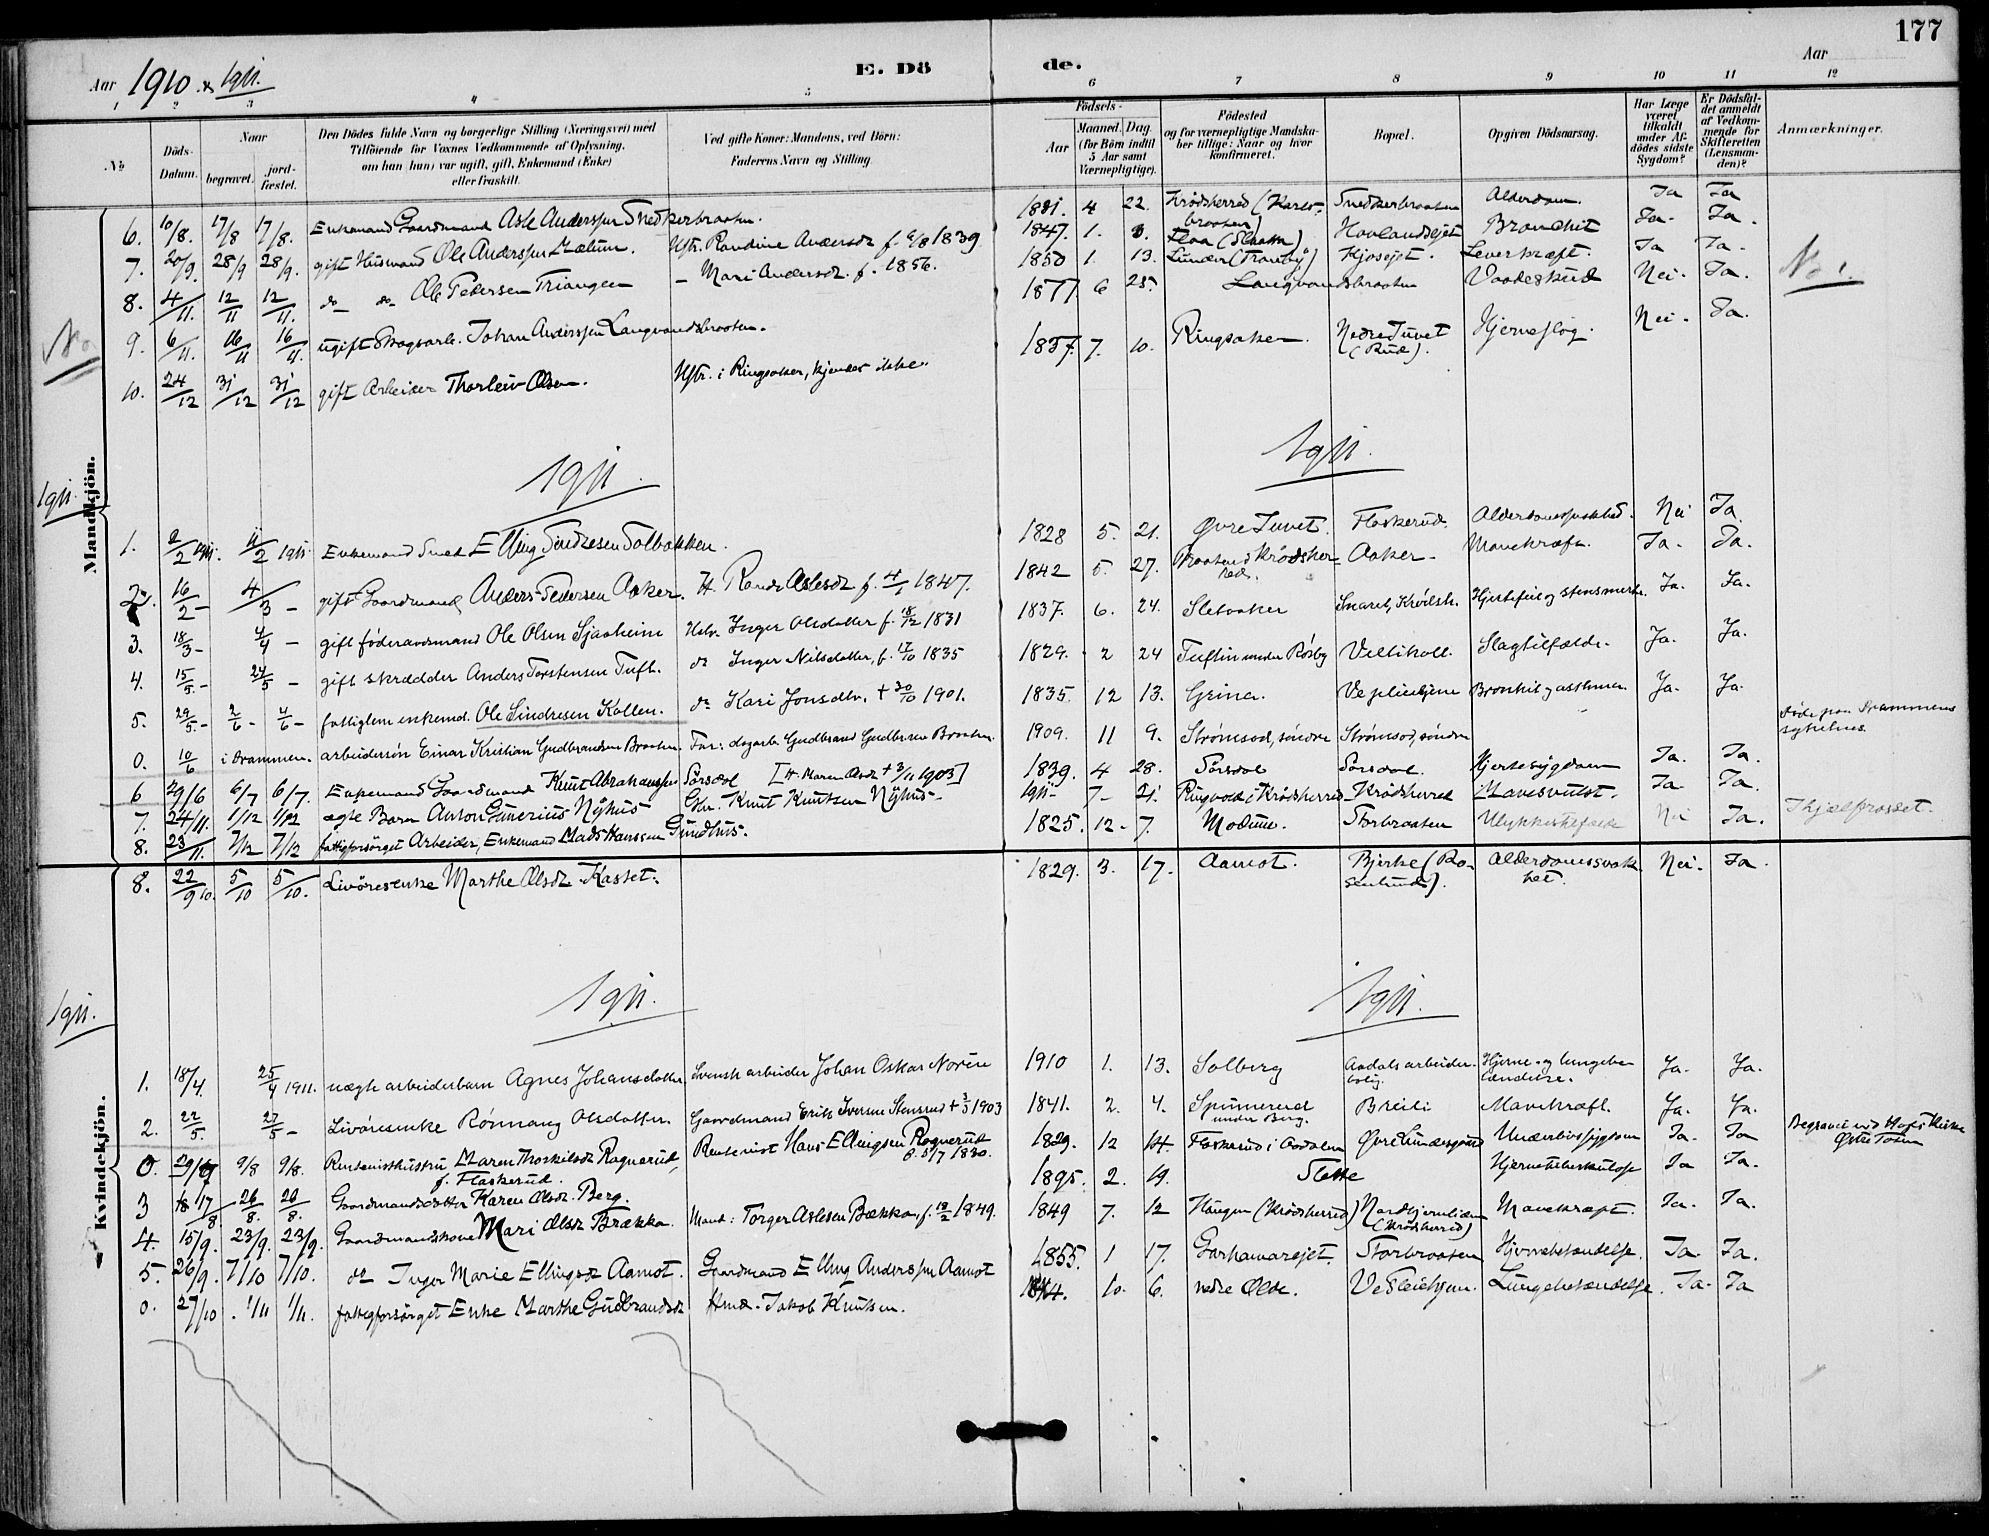 177
Aar 1910 & 1911.
E. Dö de.
Aar
1 2 3 4 5 6 7 8 9 10 11 12
No
Döds-Datum.
Naar
begravet.
jord-fæstet.
Den Dödes fulde Navn og borgerlige Stilling (Næringsvei) med
Tilföiende for Voxnes Vedkommende af Oplysning,
om han (hun) var ugift, gift, Enkemand (Enke)
eller fraskilt.
Ved gifte Koner: Mandens, ved Börn:
Faderens Navn og Stilling.
Födsels-
Aar
Maaned. Dag.
(for Börn indtil
5 Aar samt
Værnepligtige).
Födested
og for værnepligtige Mandska-
ber tillige: Naar og hvor
konfirmeret.
Bopæl.
Opgiven Dödsaarsag.
Har Læge
været
tilkaldt
under Af-
dödes sidste
Sygdom?
Er Dödsfal-
det anmeldt
af Vedkom-
mende for
Skifteretten
(Lensman-
den)?
Anmærkninger.
Mandkjön.
6. 10/8. 17/8 17/8. Enkemand Gaardmand Asle Anderssen Snedkerbraaten. 1831. 4 22. Krödsherred (Karls-
braaten) Snedkerbraaten Alderdom. Ja Ja
7. 20/9. 28/9 28/9. gift Husmand Ole Anderssen Mælum. Hstr. Randine Andersdr f. 6/8 1839 1847. 1. 3. Flaa (Slaatten) Hovlandsejet Bronchit Ja. Ja.
8. 4/11. 12/11 12/11. do do Ole Pedersen Triangen - Mari Andersdr. f. 1856. 1850 1. 13. Lunder (Tranby) Kjosejet. Leverkræft. Ja Ja.
9. 6/11. 16/11 16/11. ugift Skogsarb. Johan Anderssen Langvandsbraaten. 1877. 6 25. Langvandsbraaten Vaadeskud Nei. Ja.
10. 24/12 31/12 31/12 gift Arbeider Thorleiv Olsen. Hstr. i Ringsaker, kjendes ikke. 1857. 7. 10. Ringsaker. Nedre Juvet
(Rud). Hjerneslag. Nei. Ja.
No 1.
No
1911.
1911.
1911.
1. 2/2 1911. 11/2 1911. Enkemand Sned Elling Sindresen Solbakken. 1828 5. 21. Øvre Juvet. Flaskerud. Alderdomssvakhed. Nei Ja
2. 16/2 - 4/3 - gift Gaardmand Anders Pedersen Aaker. H. Randi Aslesdr f. 4/1 1847. 1842 5. 27. Braaten i Krödsher-
red. Aaker. Mavekræft. Ja. Ja.
3. 18/3 - 4/4 - gift föderaadsmand Ole Olsen Sjaaheim Hstr. Inger Olsdatter f. 15/12 1831 1837. 6. 24. Sletaaker Snaret, Krödsh. Hjertefeil og stensmerter. Ja. Ja.
4. 15/5 - 24/5 - gift skrædder Anders Torstensen Tuft. do Inger Nilsdatter, f. 17/10 1835 1829. 2 24 Tuftin under Rösby Vellikoll. Slagtilfælde. Ja. Ja.
5. 29/5 - 2/6 - 4/6 - fattiglem enkemd. Ole Sindresen Kollen. do Kari Jonsdtr. † 30/10 1901. 1835. 12 13. Grina. Veslieitjene Bronkit og asthma. Ja. Ja.
0. 10/6 i Drammen. arbeidersön Einar Kristian Gudbrandsen Braaten. Far: dagarb. Gudbrand Gudbrsen Braaten. 1909. 11 9. Strömsod, söndre Strömsod, söndre Döde paa Drammens
sykehus.
6 29/6 6/7 6/7. Enkemand Gaardmand Knut Abrahamssen Sörsdal [H. Maren Asdr † 3/11 1903] 1839. 4 28. Sörsdal Sörsdal. Hjertesygdom Ja. Ja.
7. 24/11. 1/12 1/12 ægte Barn Anton Gunerius Nÿhus Gbr. Knut Knutsen Nÿhus. 1911. 7. 21. Ringvold i Krödsherred Krödsherred Mavesvulst. Ja. Ja.
8. 23/11. 7/12 7/12 fattigforsörget Arbeider, Enkemand Mads Hanssen Gundhus. 1825. 12. 7. Modum. Storbraaten Ulykkestilfælde Nei Ja. Ihjelfrosset.
Kvindekjön.
8. 22/9 10. 5/10 5/10. Livöresenke Marthe Olsdr Kasset. 1829. 3. 17. Aamot. Bjerke (Ro-
senlund). Alderdomssvak-
het. Nei. Ja.
1911.
1911.
1911.
1. 18/4. 25/4 1911. uægte arbeiderbarn Agnes Johansdatter Svensk arbeider Johan Oskar Norén 1910 1. 13. Solberg Aadals arbeider-
bolig. Hjerne- og lungebe-
tændelse. Ja. Ja.
2. 22/5. 27/5 - Livöresenke Rönnaug Olsdatter. Gaardmand Erik Iversen Stensrud † 3/5 1903 1841. 2. 4. Spinnerud
under Berg. Breili Mavekræft. Ja. Ja.
0. 29/7 9/8 9/8. Rentenisthustru Maren Thorkilsdr Ragnerud,
f. Flaskerud. Rentenist Hans Ellingsen Ragnerud
f. 5/7 1830. 1829. 12 14. Flaskerud i Aadalen Øvre Lindelsgaard Underlivssygdom Ja. Ja Begravet ved Hofs Kirke
Østre Toten
3 18 17/8 26/8. 26/8. Gaardmandsdatter Karen Olsdr. Berg. 1895. 2. 19. Slette Hjernetuberkulose Ja Ja.
4. 15/9. 23/9. 23/9. Gaardmandskone Mari Olsdr Brækka. Mand: Torger Aslesen Bækka, f. 12/2 1849. 1849 7. 12 Haugen (Krödsherred) Nordhjernlien
(Krödsherred) Mavekræft. Ja. Ja.
5. 26/9. 7/10 7/10. do Inger Marie Ellingsdr Aamot. Gaardmand Elling Anderssen Aamot 1855. 1 17. Garhamarejet. Storbraaten Hjernebetændelse. Ja Ja.
0. 27/10 1/11 1/11. fattigforsörget Enke Marthe Gudbrandsdr Hmd. Jakob Knutsen. 1844. 10. 6. nedre Olde. Veslieitjern. Lungebetændelse. Ja. Ja